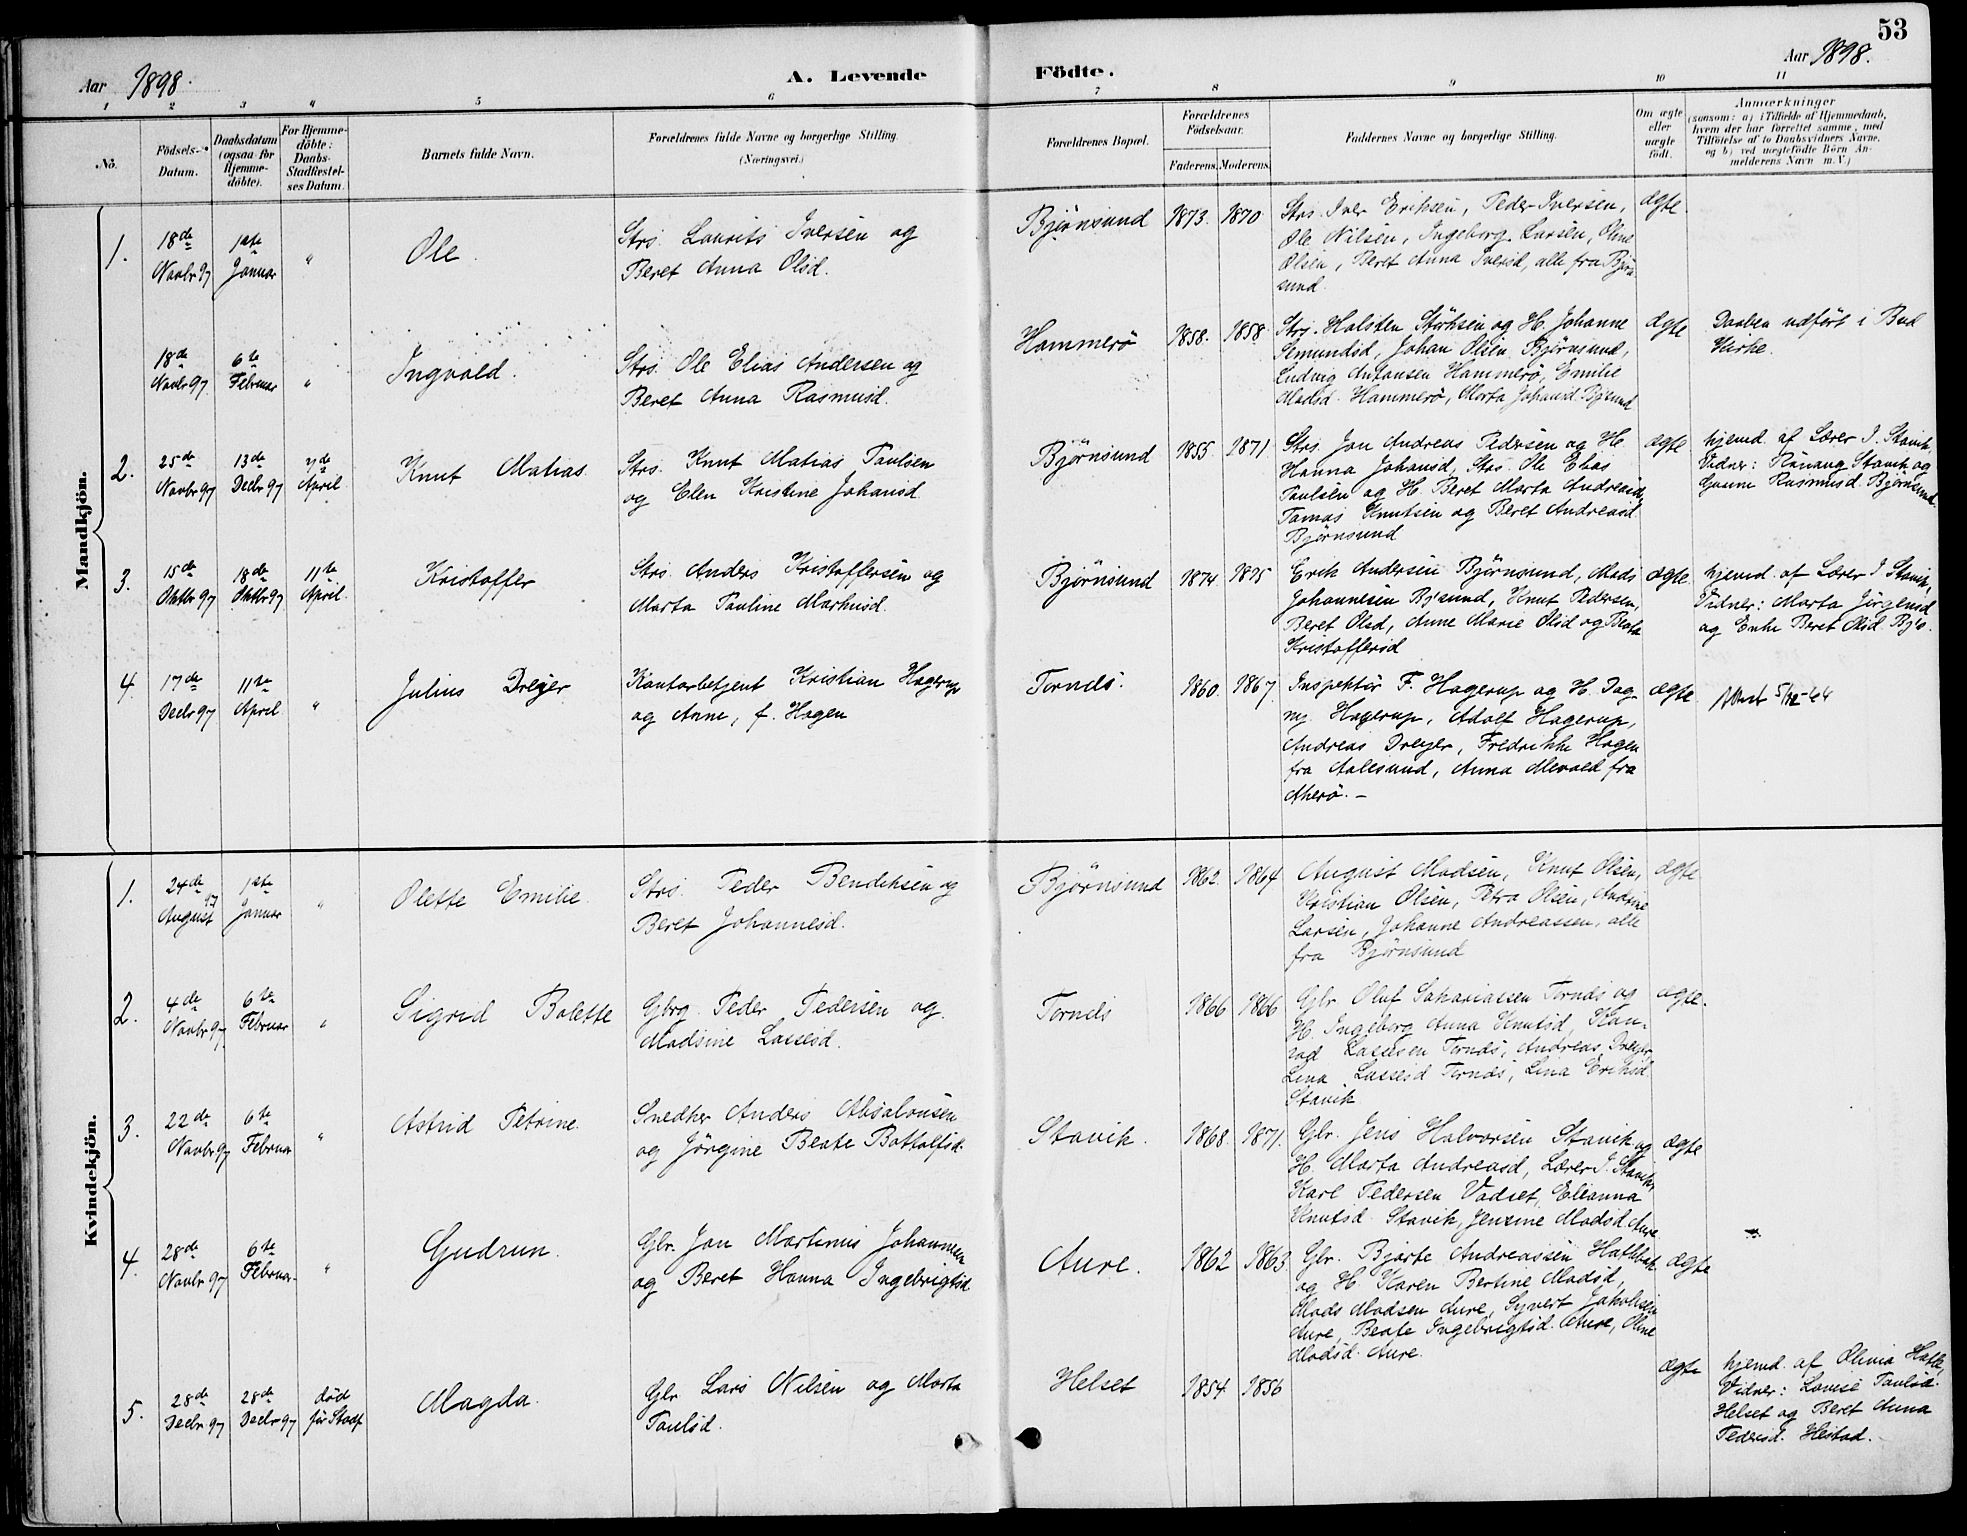 53
Aar 1898.
A. Levende Födte.
Aar 1898.
1 2 3 4 5 6 7 8 9 10 11
No.
Födsels-
Datum.
Daabsdatum
(ogsaa for
Hjemme-
döbte).
For Hjemme-
döbte:
Daabs-
Stadfæstel-
ses Datum.
Barnets fulde Navn.
Forældrenes fulde Navne og borgerlige Stilling.
(Næringsvei.)
Forældrenes Bopæl.
Forældrenes
Födselsaar.
Faderens. Moderens.
Faddernes Navne og borgerlige Stilling.
Om ægte
eller
uægte
födt.
Anmærkninger
(saasom: a) i Tilfælde af Hjemmedaab,
hvem der har forrettet samme, med
Tilföielse af to Daabsvidners Navne,
og b) ved uægtefödte Börn An-
melderens Navn m. V.)
Mandkjön.
1.
18de
Novbr 97
1ste
Januar
"
Ole.
Strs. Laurits Iversen og
Beret Anna Olsd.
Bjørnsund
1873. 1870
Strs. Iver Eriksen, Peder Iversen,
Ole Nilsen, Ingeborg Larsen, Oline
Olsen, Beret Anna Iversd, alle fra Bjørn
sund.
ægte.
18de
Novbr 97
6te
Februar
"
Ingvald.
Strs. Ole Elias Andersen og
Beret Anna Rasmusd.
Hammerö
1858. 1858
Strs. Halsten og H. Johanne
Semundsd, Johan Olsen, Björnsund,
Ludvig Antonsen Hammerö, Emilie
Madsd. Hammerö, Marta Johansd. Bj'sund
ægte
Daaben udfört i Bud
Kirke.
2.
25de
Novbr 97
13de
Decbr 97
7de
April
Knut Matias.
Strs. Knut Matias Paulsen
og Elen Kristine Johansd.
Bjørnsund
1855. 1871
Strs. Jon Andreas Pedersen og H.
Hanna Johansd, Strs. Ole Elias
Paulsen og H. Beret Marta Andreasd,
Tomas Knutsen og Beret Andreasd
Bjørnsund
ægte
hjemd. af Lærer I. Stavik,
Vidner: Rönaug Stavik og
Rasmusd. Bjørnsund.
3.
15de
Oktbr 97
18de
Oktbr 97
11te
April
Kristoffer
Strs. Anders Kristoffersen og
Marta Pauline Markusd.
Bjørnsund
1874. 1875
Erik Andersen Björnsund, Mads
Johannesen Bj'sund, Knut Pedersen,
Beret Olsd, Anne Marie Olsd og Beata
Kristoffersd
ægte
hjemd. af Lærer I Stavik,
Vidner: Marta Jörgensd
og Enke Beret Olsd. Bj's.
4.
17de
Decbr 97
11te
April
"
Julius Dreyer
Kontorbetjent Kristian Hagerup
og Anne, f. Hagen
Tornæs.
1860. 1867.
Inspektör F. Hagerup og H. Dag-
ny Hagerup, Adolf Hagerup,
Andreas Dreyer, Fredrikke Hagen
fra Aalesund, Anna Mevold fra
Akerö. –
ægte
5/12-44
Kvindekjön.
1.
24de
August 97
1ste
Januar
"
Olette Emilie.
Strs. Peder Bendiksen og
Beret Johannesd.
Bjørnsund
1862. 1864
August Madsen, Knut Olsen,
Kristian Olsen, Petra Olsen, Andrine
Larsen, Johanne Andreassen, alle
fra Bjørnsund
ægte
2.
4de
Novbr 97
6te
Februar
"
Sigrid Bolette
Gbrg. Peder Pedersen og
Madsine Lassesd.
Tornæs
1866 1866
Gbr. Oluf Sakariassen Tornæs og
H. Ingeborg Anna Knutsd, Kon-
rad Lassesen Tornæs, Andreas Dreyer,
Lina Lassesd Tornæs, Lina Eriksd
Stavik
ægte.
3.
22de
Novbr 97
6te
Februar
"
Astrid Petrine.
Snedker Anders Absalonsen
og Jörgine Beate Bottolfsd.
Stavik.
1868. 1871.
Gbr. Jens Halvorsen Stavik og
H. Marta Andreasd, Lærer I. Stavik,
Karl Pedersen Vadset, Elianna
Knutsd. Stavik, Jensine Madsd. Aure
ægte
4.
28de
Novbr 97
6te
Februar.
"
Gudrun.
Gbr. Jon Martinus Johannesen
og Beret Hanna Ingebrigtsd.
Aure.
1862 1863
Gbr. Bjarte Andreassen
og H. Karen Bertine Madsd,
Mads Madsen Aure, Syvert Jakobsen
Aure, Beate Ingebrigtsd. Aure, Oline
Madsd. Aure.
ægte
5.
28de
Decbr 97
28de
Decbr 97
död
för Stadf
Magda.
Gbr. Lars Nilsen og Marta
Paulsd.
Helset
1854. 1856
ægte
hjemd. af Olivia
Vidner: Lovise Paulsd.
Helset og Beret Anna
Pedersd. Hestad.